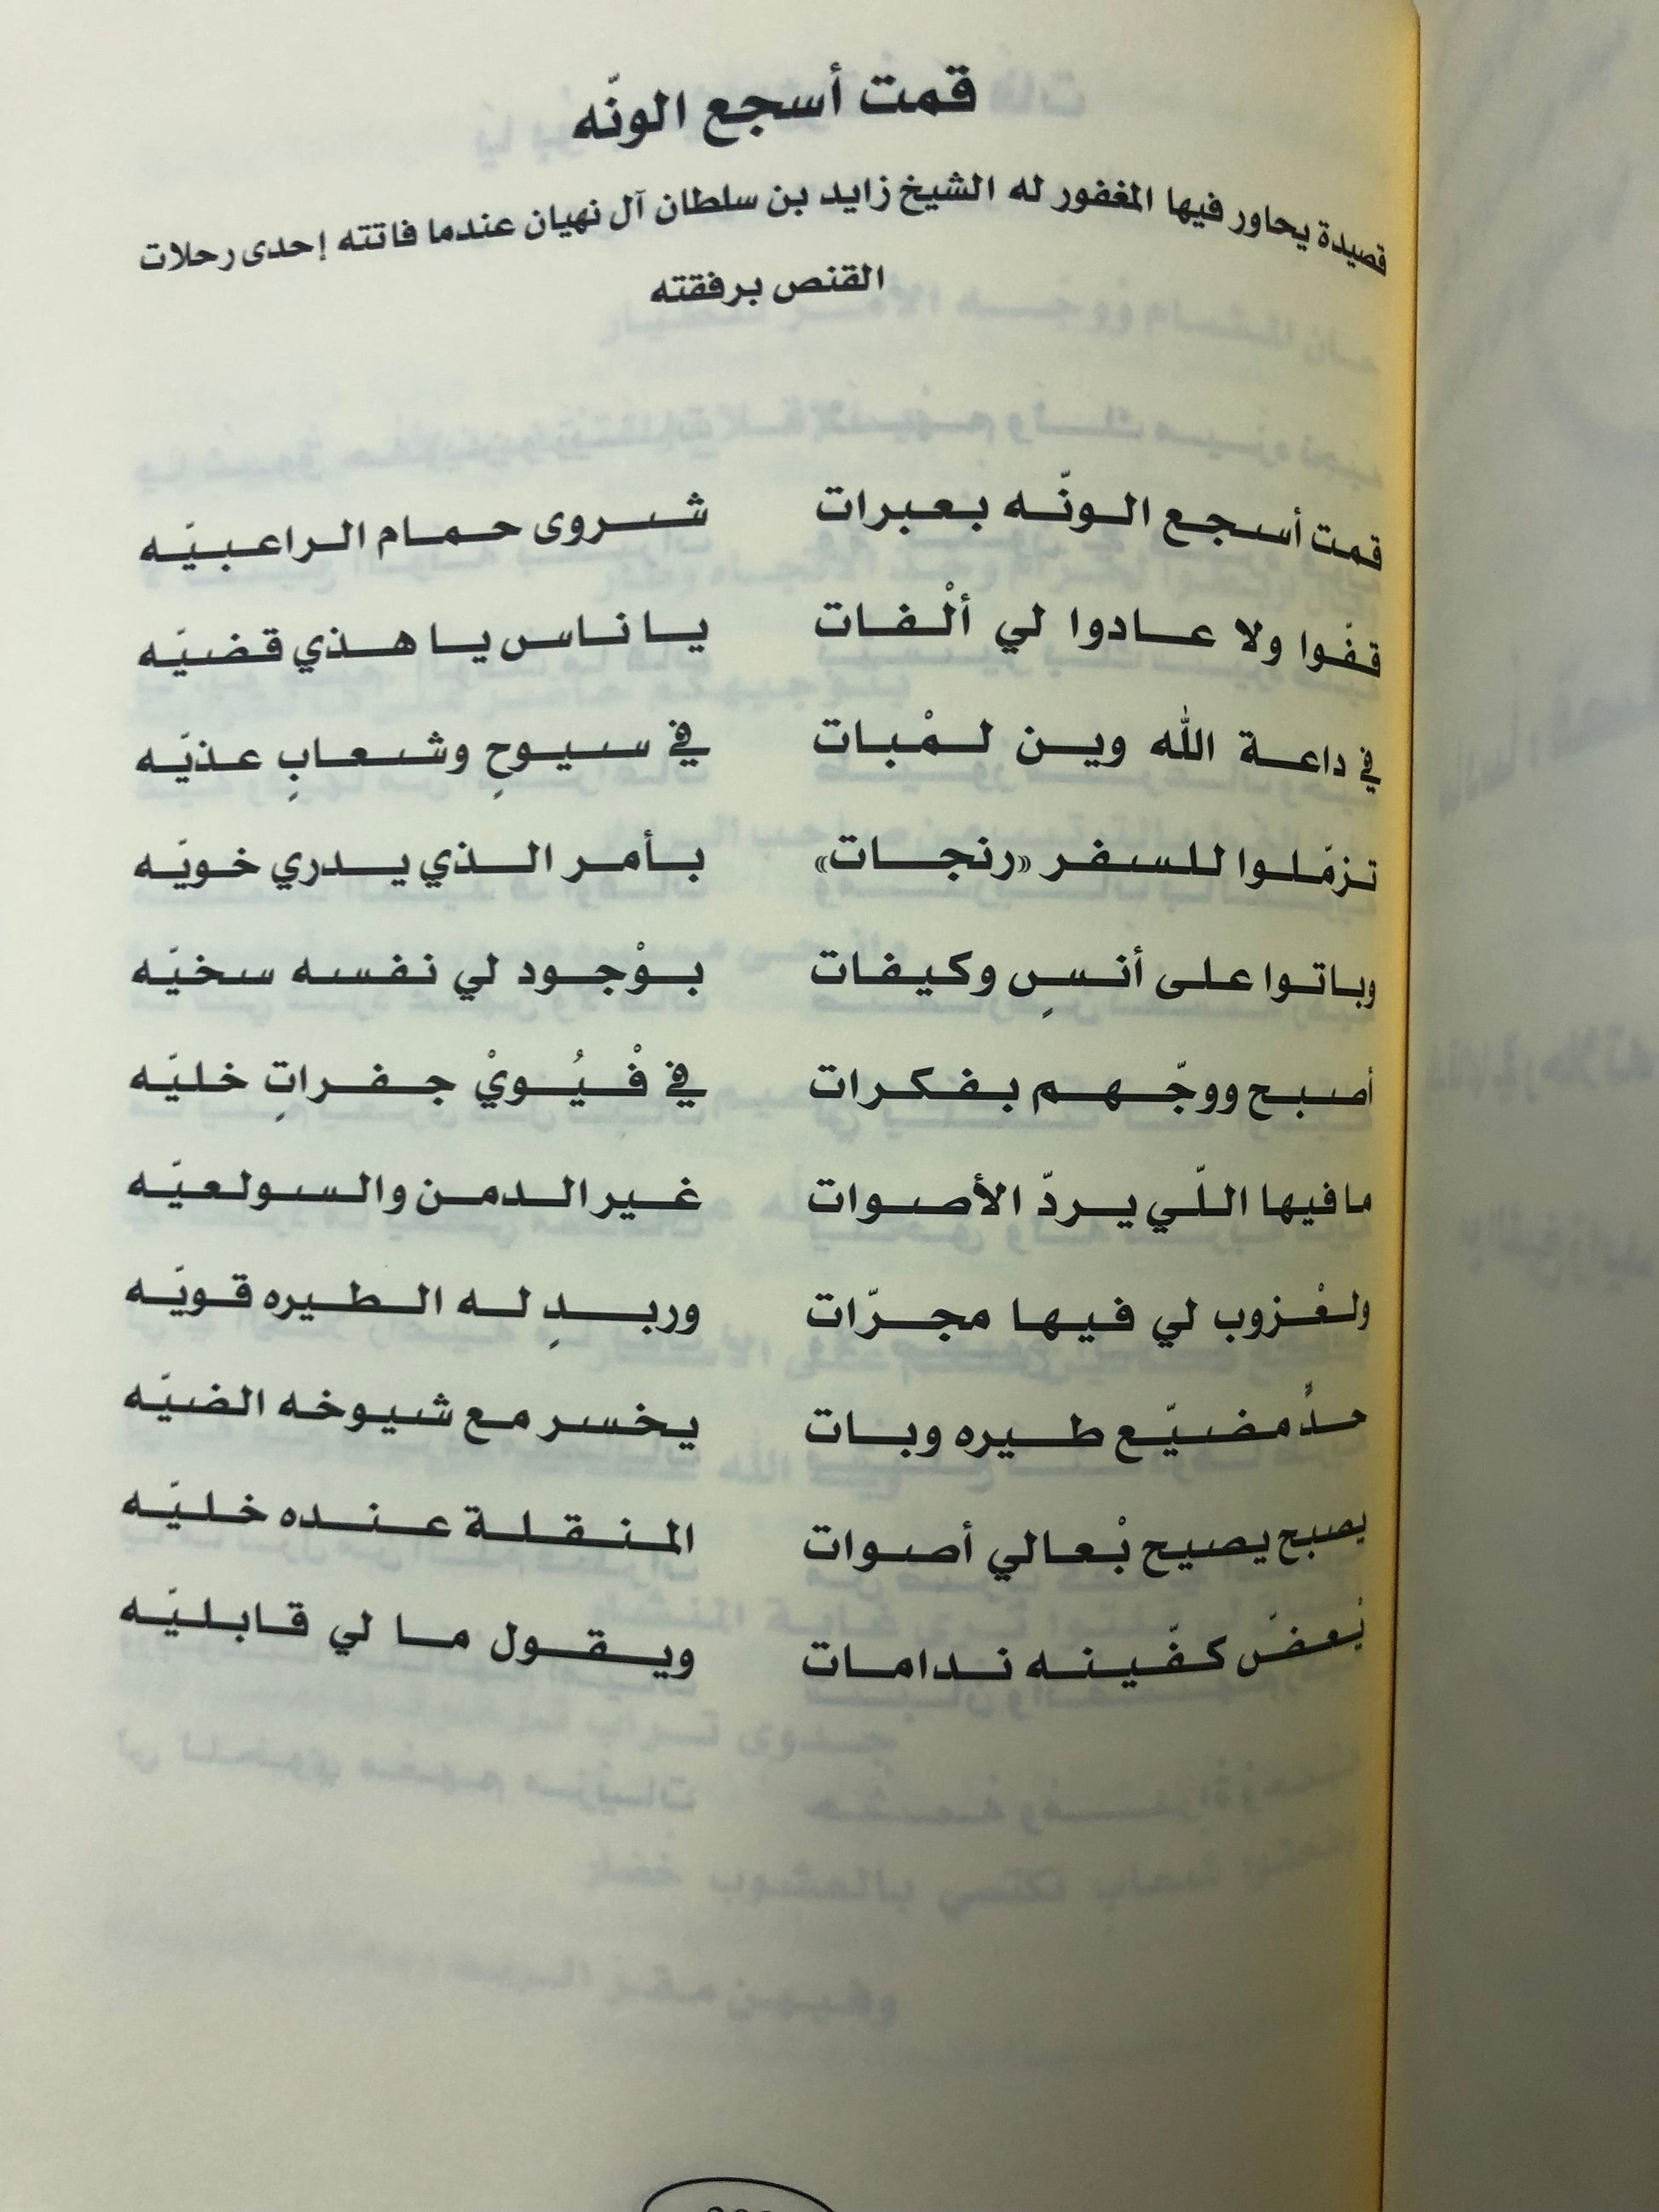 قمت أسجع الونّه
قصيدة يحاور فيها المغفور له الشيخ زايد بن سلطان آل نهيان عندما فاتته إحدى رحلات
القنص برفقته
قمت أسجع الونّه بعبرات شروى حمام الراعبيّه
قفّوا ولا عادوا لي ألْفات يا ناس يا هذي قضيّه
في داعة الله وين لمْبات في سيوحٍ وشعابٍ عذيّه
تزمّلوا للسفر «رنجات» بأمر الذي يدري خويّه
وباتوا على أنسٍ وكيفات بوْجود لي نفسه سخيّه
أصبح ووجّهم بفكرات في فْيُويْ جفراتٍ خليّه
ما فيها اللّي يردّ الأصوات غير الدمن والسولعيّه
ولعْزوب لي فيها مجرّات وربدٍ له الطيره قويّه
حدٍّ مضيّع طيره وبات يخسر مع شيوخه الضيّه
يصبح يصيح بْعالي أصوات المنقلة عنده خليّه
يْعضّ كفّينه ندامات ويقول ما لي قابليّه